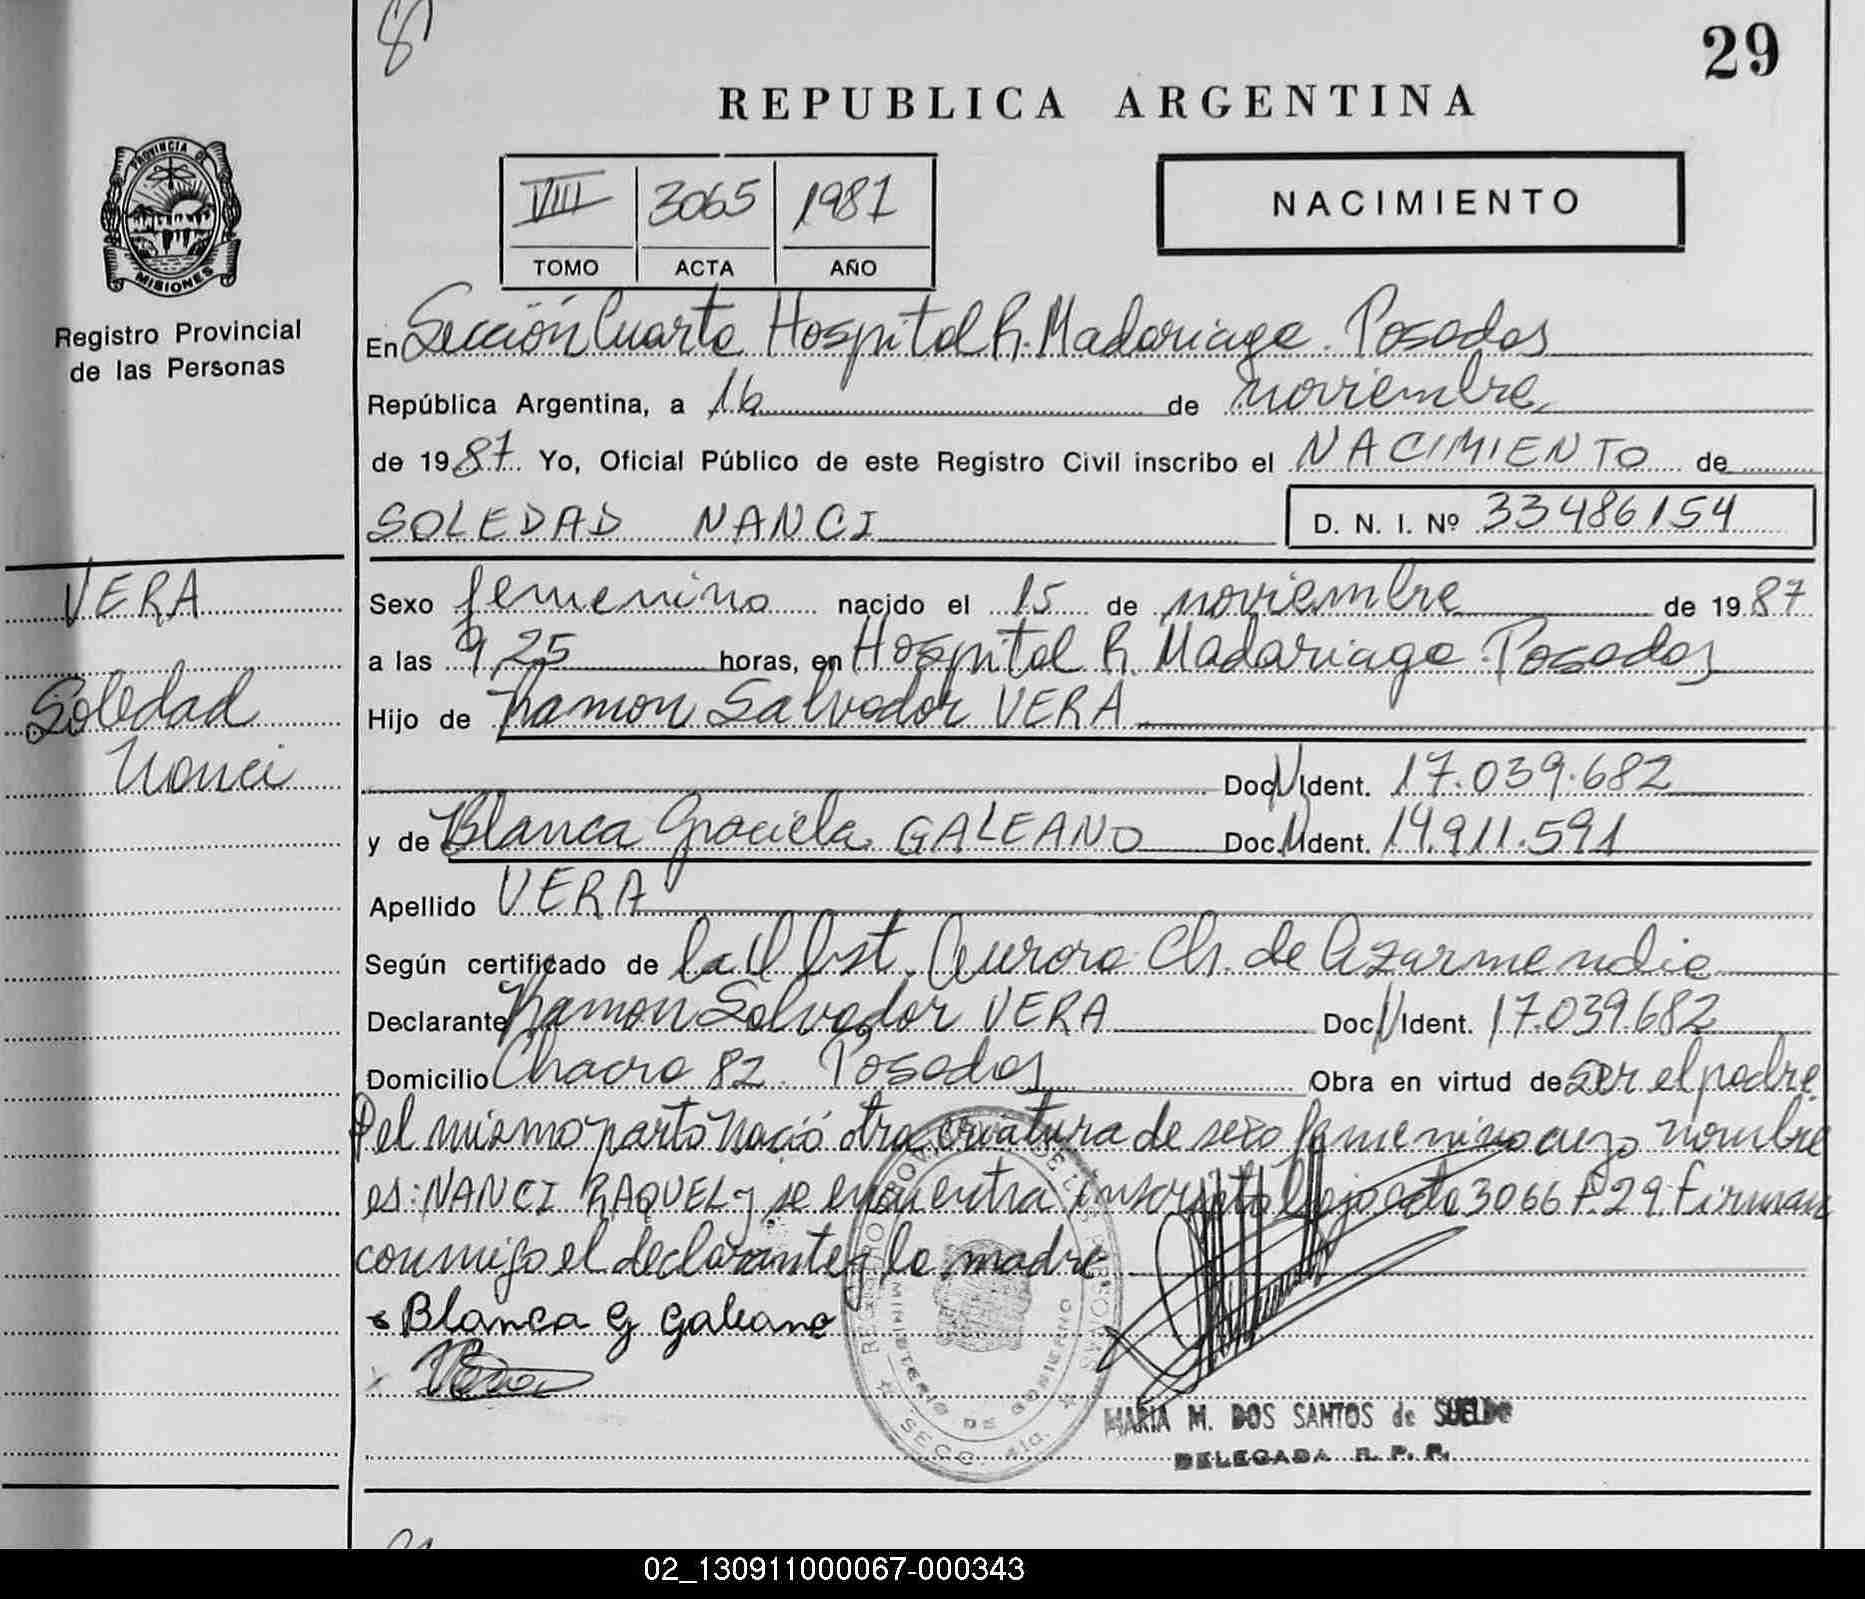 29
REPUBLICA ARGENTINA
VIII 3065 1987
TOMO ACTA AÑO
NACIMIENTO
PROVINCIA DE
MISIONES
Registro Provincial
de las Personas
En Sección Cuarta Hospital R. Madariaga. Posadas
República Argentina, a 16 de noviembre
de 1987. Yo, Oficial Público de este Registro Civil inscribo el NACIMIENTO de
SOLEDAD NANCI
D. N. I. Nº 33486154
VERA
Soledad
Nanci
Sexo femenino nacido el 15 de noviembre de 1987
a las 9,25 horas, en Hospital R. Madariaga. Posadas
Hijo de Ramon Salvador VERA
Doc. Ident. 17.039.682
y de Blanca Graciela GALEANO Doc. Ident. 14.911.591
Apellido VERA
Según certificado de la Obst. Aurora Ch. de Azarmendia
Declarante Ramon Salvador VERA Doc. Ident. 17.039.682
Domicilio Chacra 82. Posadas Obra en virtud de ser el padre.
Del mismo parto nació otra criatura de sexo femenino cuyo nombre
es: NANCI RAQUEL y se encuentra inscripta bajo acta 3066 F. 29. Firman
conmigo el declarante y la madre
Blanca G Galeano
REGISTRO PROVINCIAL DE LAS PERSONAS
MINISTERIO DE GOBIERNO
SECC. 4ta.
MARIA M. DOS SANTOS de SUELDO
DELEGADA R. P. P.
02_130911000067-000343